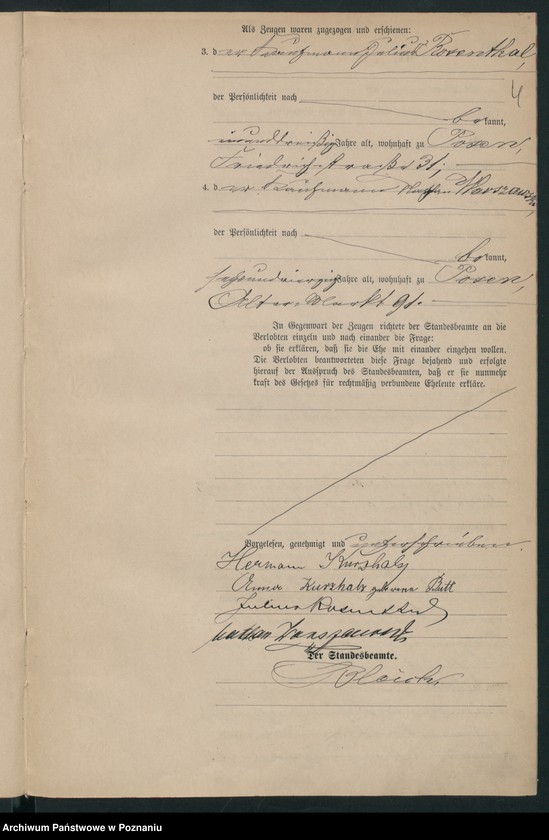 Als Zeugen waren zugezogen und erschienen:
3. der Kaufmann Julius Rosenthal,
4
der Persönlichkeit nach
bekannt,
Jahre alt, wohnhaft zu Posen,
Friedrichstraße 31;
4. der Kaufmann Nathan Warszawski,
der Persönlichkeit nach
bekannt,
sechsundvierzig Jahre alt, wohnhaft zu Posen,
Alter Markt 91.
In Gegenwart der Zeugen richtete der Standesbeamte an die
Verlobten einzeln und nach einander die Frage:
ob sie erklären, daß sie die Ehe mit einander eingehen wollen.
Die Verlobten beantworteten diese Frage bejahend und erfolgte
hierauf der Ausspruch des Standesbeamten, daß er sie nunmehr
kraft des Gesetzes für rechtmäßig verbundene Eheleute erkläre.
Vorgelesen, genehmigt und unterschrieben.
Hermann Kurzhalz
Kurzhalz geborene Butt
Julius Rosenthal
Nathan Warszawski
Der Standesbeamte.
Archiwum Państwowe w Poznaniu